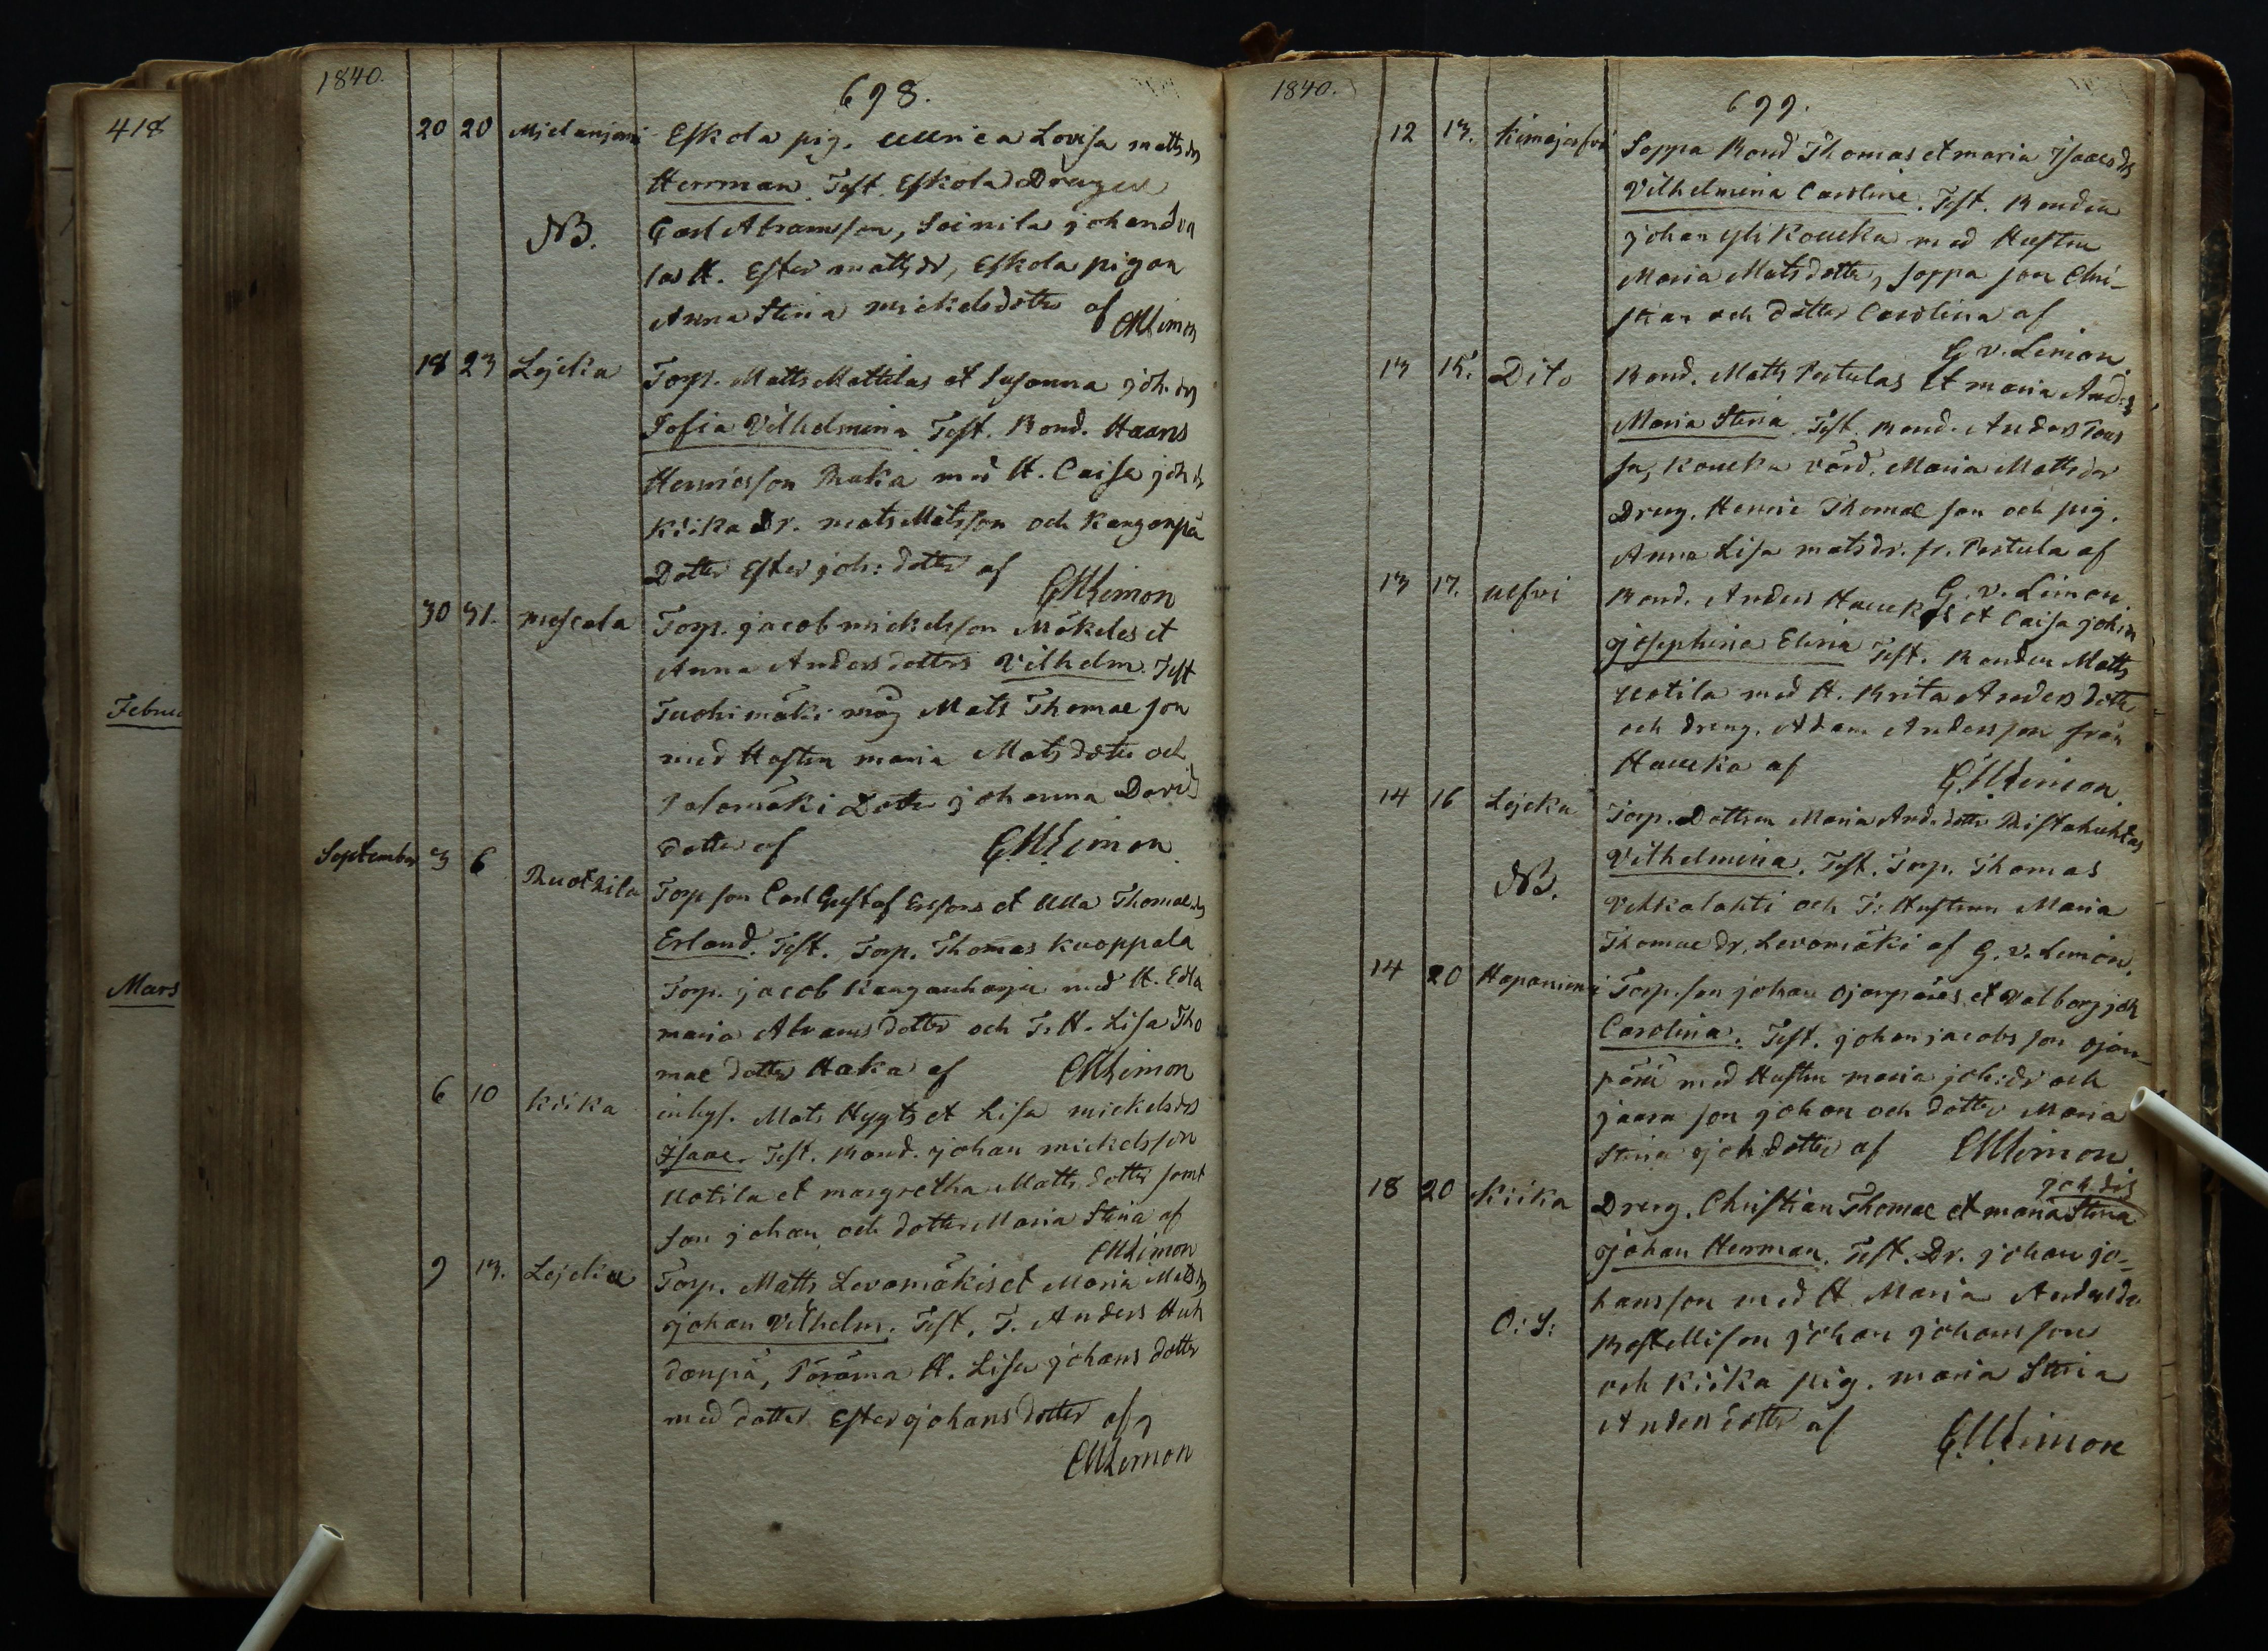 418
Februa
Mars
1840.
698.
20 20 Mjelänjoni Eskola pig. Ullrica Lovisa matts ds
Herrman. Test. Eskola Drengen
NB. Carl Abramsson, Soinila johan
H. Ester mattsdr, Eskola pigan
Anna Stina mickelsdotter af GVLimon
18 23 Lejcku Torp. Matts Mattilas et Susanna joh. ds
Sofia Vilhelmina Test. Bond. Haans
Henricsson med H. Caisa joh ds
Kiika Dr. mats Matsson och Kanganpä
Dotter Ester joh: dotter af GVLimon
30 31. moscala Torp. jacob mickelsson Mäkeles et
Anna Andersdotters Vilhelm. Test
Tuohimäki måg Mats Thomaeson
med Hustru maria Matsdotter och
Salomäki Dotter johanna David
dotter af GVLimon
September 3 6 Ruotzila Torp son Carl Gustaf et Ulla Thomae ds
Erland. Test. Torp. Thomas Kuoppala
Torp. jacob Kanganharju med H. Edla
maria Abrams dotter och T. H. Lisa Tho
mae dotter Haka af GVLimon
6 10 Kiika inhys. Mats Hygts et Lisa mickelsdrs
Isaac. Test. Bond. johan mickelsson
Uotila et margretha Matts dotter samt
son johan och dotter Maria Stina af
GVLimon
9 13. Lejcku Torp. Matts Levomäkis et Maria Mats ds
johan Vilhelm. Test. T. Anders Huh
danpä, Pöräma H. Lisa johans dotter
med dotter Ester johans dotter af
GVLimon
1840.
699.
12 13. Kimajerfvi Soppa Bond Thomas et maria Isaacs ds
Vilhelmina Caroline. Test. Bonden
johan yli Koucku med Hustru
Maria Matsdotter, Soppa son Chri-
stian och dotter Carolina af
G v. Limon.
13 15. Dito Bond. Matts Pertulas et maria And: ds
Maria Stina. Test. Bond. Anders
Koucku värd. Maria Matts dr
Dreng. Henric Thomae son och pig.
Anna Lisa matsdr. fr. Pertula af
G. v. Limon.
13 17. ulfvi Bond. Anders Hauckas et Caisa joh: ds
josephina Elina Test. Bonden Matts
Uotila med H. Brita Anders dotter
och dreng. Adam Andersson från
Haucka af GVLimon.
14 16 Lejcku Torp. Dottren Maria And. dotter Ristahuhtas
Vilhelmina. Test. Torp. Thomas
NB. Vekkalahti och T: Hustrun Maria
Thomae dr, Levomäki af G. v. Limon.
14 20 Haponiemi Torp. son johan Ojanpäres et Valborg joh
Carolina. Test. johan jacobsson Ojan-
päri med Hustru maria joh: dr och
jaara son johan och dotter Maria
Stina joh dotter af GVLimon
18 20 Kiika Dreng. Christian Thomae et maria Stina joh. drs
johan Herrman. Test. Dr. johan jo-
hansson med H. Maria Andersdr
O: S: johan johansson
och Kiika pig. maria Stina
Andersdotter af GVLimon